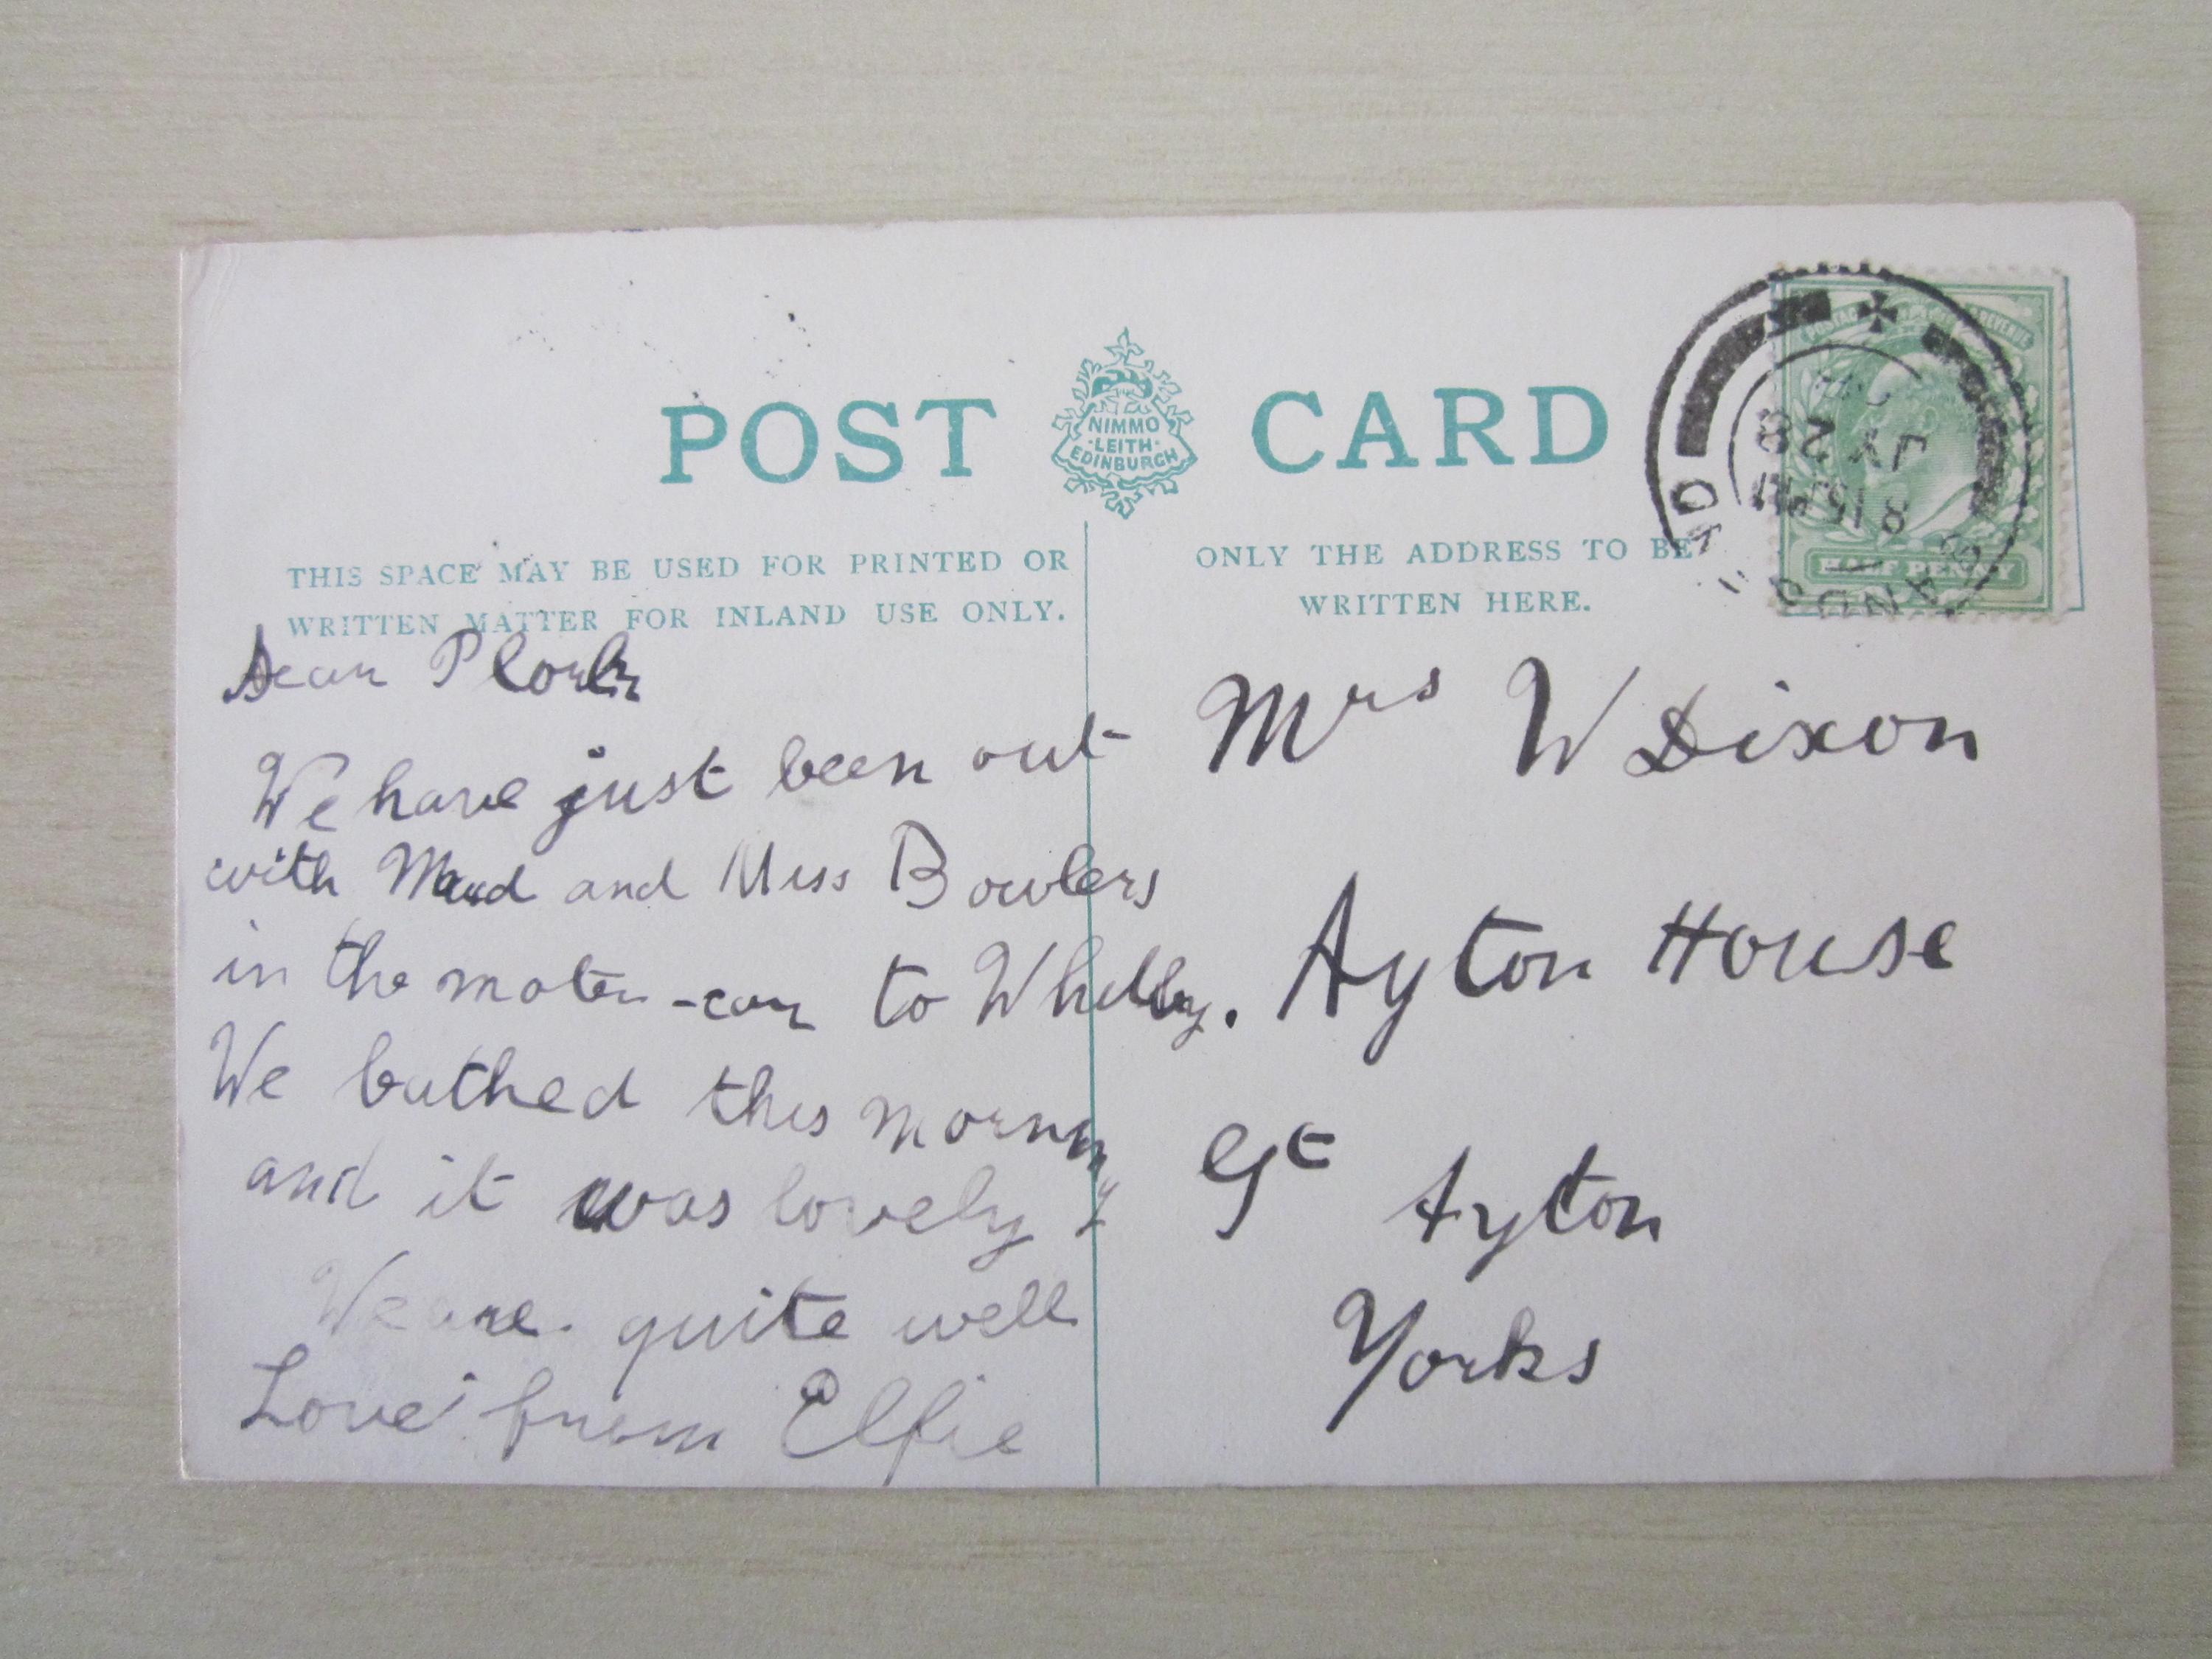 POST CARD
NIMMO
LEITH
EDINBURGH
THIS SPACE MAY BE USED FOR PRINTED OR
WRITTEN MATTER FOR INLAND USE ONLY.
ONLY THE ADDRESS TO BE
WRITTEN HERE.
8 15 PM
JY 28
HALF PENNY
Dear
We have just been out
with Maud and Miss Bowlers
in the motor-car to
We bathed this morning
and it was lovely
We are quite well
Love from Elfie
Mrs W Dixon
Ayton House
Gt Ayton
Yorks